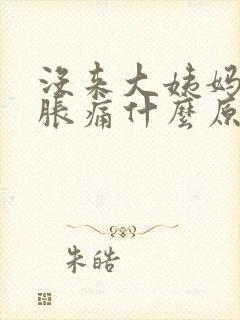 没来大姨妈
胀痛什麽原
朱皓